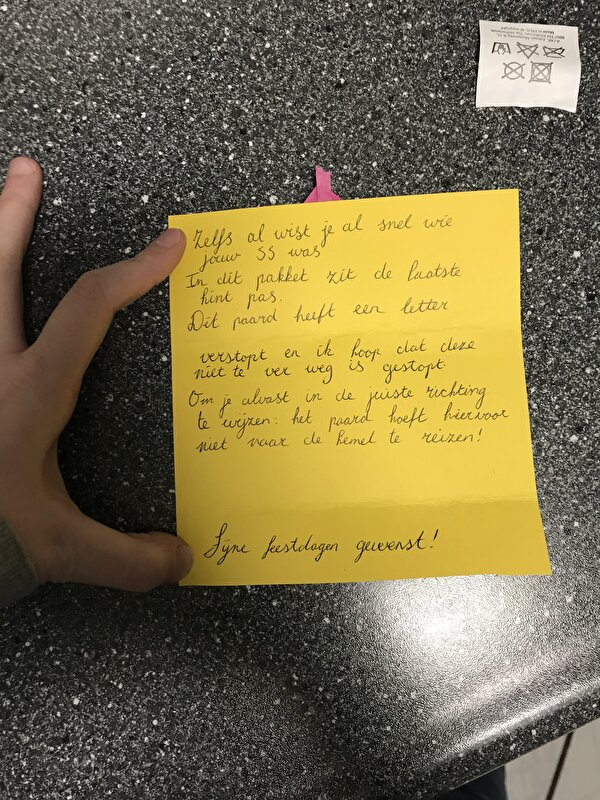 Zelfs al wist je al snel wie
jouw SS was
In dit pakket zit de laatste
hint pas.
Dit paard heeft een letter
verstopt en ik hoop dat deze
niet te ver weg is gestopt
Om je alvast in de juiste richting
te wijzen: het paard hoeft hiervoor
niet naar de hemel te reizen!
Fijne feestdagen gewenst!